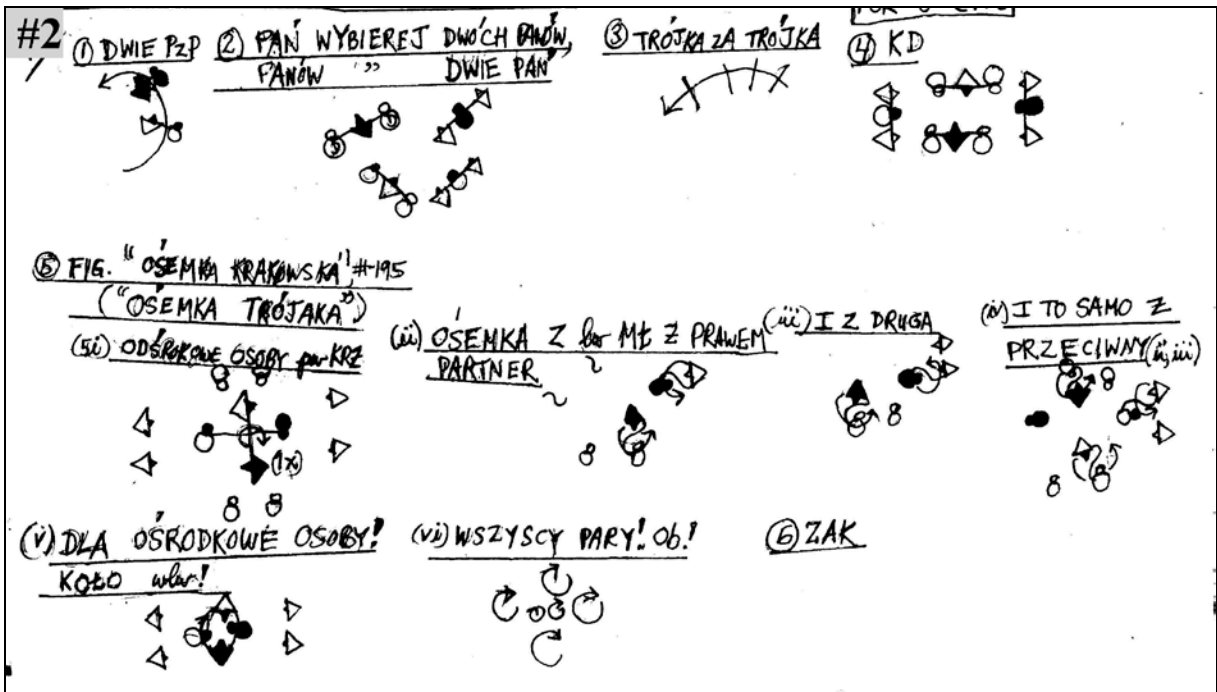 #2
① DWIE PzP
② PAŃ WYBIEREJ DWÓCH PANÓW,
PANÓW " DWIE PAŃ
③ TRÓJKA ZA TRÓJKA
④ KD
⑤ FIG. "OŚEMKA KRAKOWSKA", #195
("OŚEMKA TRÓJAKA")
(5i) ODŚROKOWE OSOBY par KRZ
(1x)
(ii) OŚEMKA Z MŁ Z PRAWEM
PARTNER
(iii) I Z DRUGA
(iv) I TO SAMO Z
PRZECIWNY (ii, iii)
(v) DLA OŚRODKOWE OSOBY!
KOŁO wlew!
(vi) WSZYSCY PARY! Ob.!
⑥ ZAK